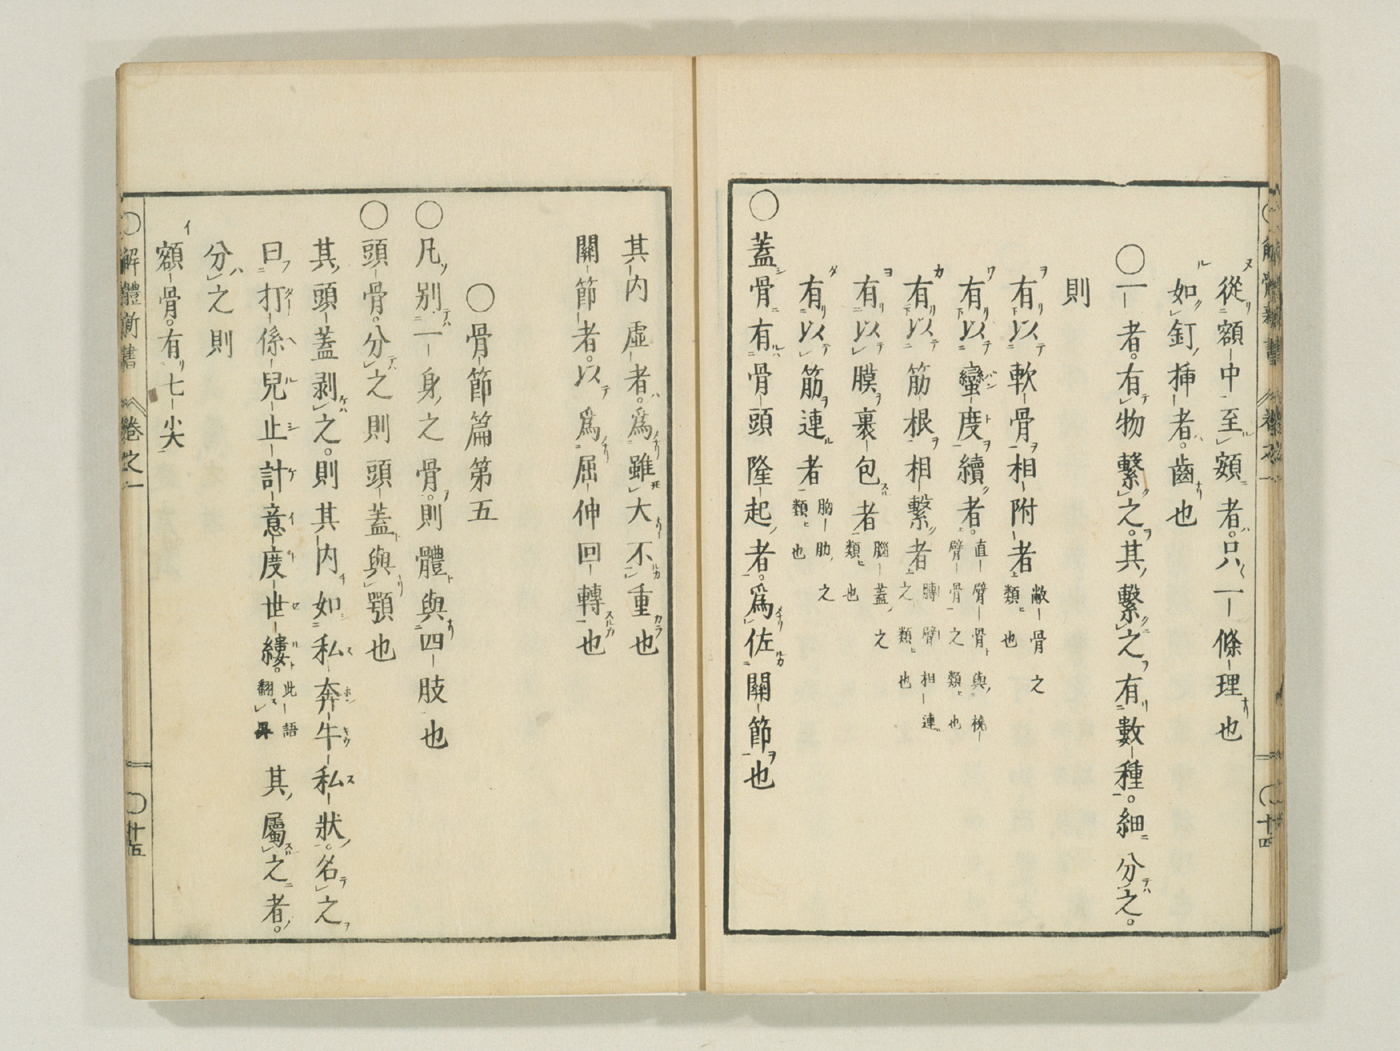 從額中至額者。只一條理也
如釘挿者。齒也
○一者。有物繫之。其繫之有數種。細分之。
則
有以軟骨相附者 敵骨之類也
有以蠻度續者。直臂骨與橈臂骨之類也
有以筋根相繫者 膊臂相連之類也
有以膜裹包者 腦蓋之類也
有以筋連者 胸肋之類也
○蓋骨有骨頭隆起者。爲佐關節也
其内虛者。爲雖大不重也
關節者。以爲屈伸回轉也
○骨節篇第五
○凡别一身之骨。則體與四肢也
○頭骨。分之則頭蓋與顎也
其頭蓋剥之。則其内如私奔牛私狀。名之
曰打係兒止計意度世縷。此語翻 其屬之者。
分之則
額骨。有七尖
○解體新書 卷之一 ○十四
○解體新書 卷之一 ○十五